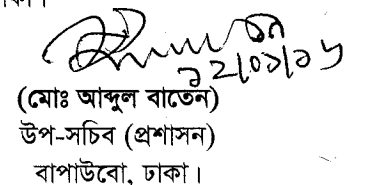 ১২/০১/১৬
(মোঃ আব্দুল বাতেন)
উপ-সচিব (প্রশাসন)
বাপাউবো, ঢাকা।